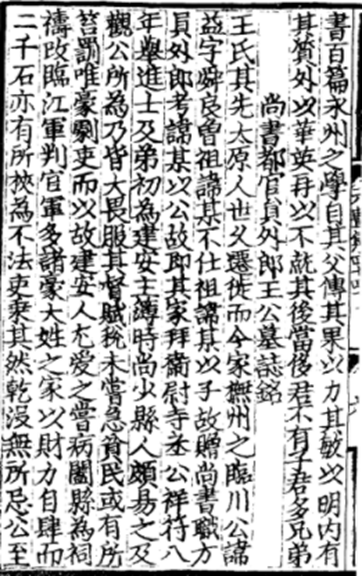 書百篇永州之學自其父傳其果以力其敏以明内有
其質外以華英再以不就其後當侈君不有子君多兄弟
尚書都官員外郎王公墓誌銘
王氏其先太原人世父遷徙而今家撫州之臨川公諱
益字舜良曽祖諱某不仕祖諱某以子故贈尚書職方
員外郎考諱某以公故即其家拜衛尉寺丞公祥符八
年舉進士及弟初為建安主簿時尚少縣人頗易之及
觀公所為乃皆大畏服其督賦稅未嘗急貧民或有所
笞罰唯豪劇吏而以故建安人尤愛之嘗病闔縣為祠
禱改臨江軍判官軍多諸豪大姓之家以財力自肆而
二千石亦有所挾為不法吏乘其然乾沒無所忌公至